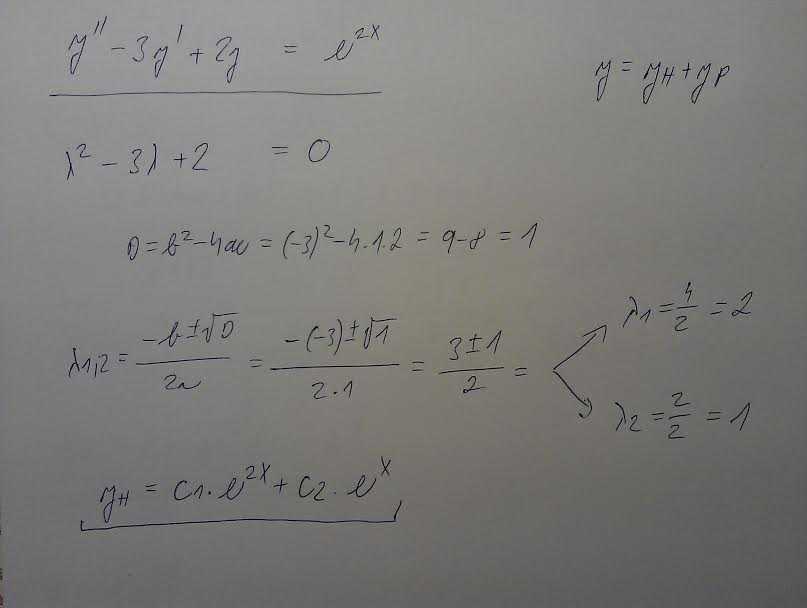 y'' - 3y' + 2y = e^{2x}
y = y_H + y_P
λ² - 3λ + 2 = 0
D = b² - 4ac = (-3)² - 4.1.2 = 9 - 8 = 1
λ_{1,2} = \frac{-b ± √D}{2a} = \frac{-(-3) ± √1}{2.1} = \frac{3 ± 1}{2} =
λ_1 = \frac{4}{2} = 2
λ_2 = \frac{2}{2} = 1
y_H = C_1 . e^{2x} + C_2 . e^x